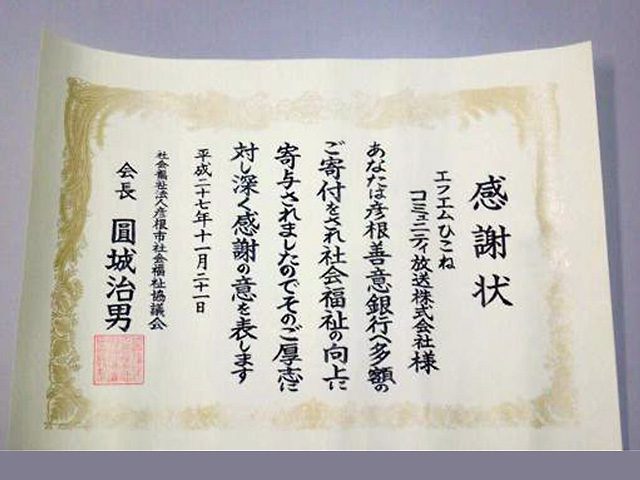 感謝状
エフエムひこね
コミュニティ放送株式会社様
あなたは彦根善意銀行へ多額の
ご寄付をされ社会福祉の向上に
寄与されましたのでそのご厚志に
対し深く感謝の意を表します
平成二十七年十一月二十一日
社会福祉法人彦根市社会福祉協議会
会長 圓城治男